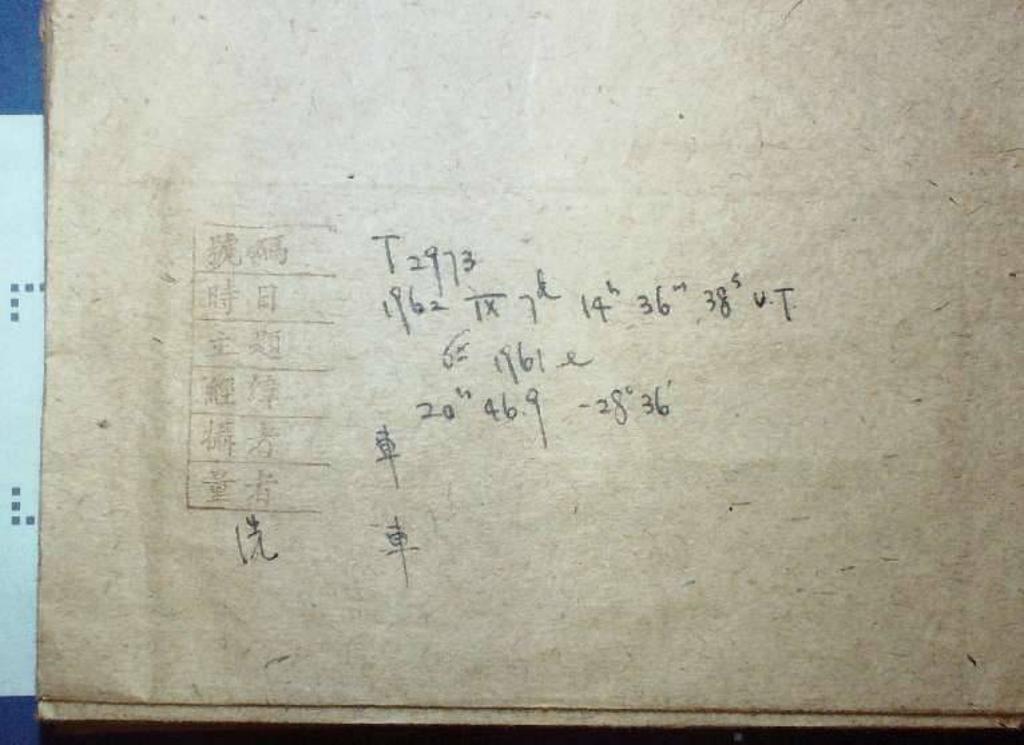 號碼 T 2973
時日 1962 IX 7d 14h 36m 38s U.T
主題 1961 e
經緯 20h 46.9 -28° 36'
攝者 車
量者
洗 車